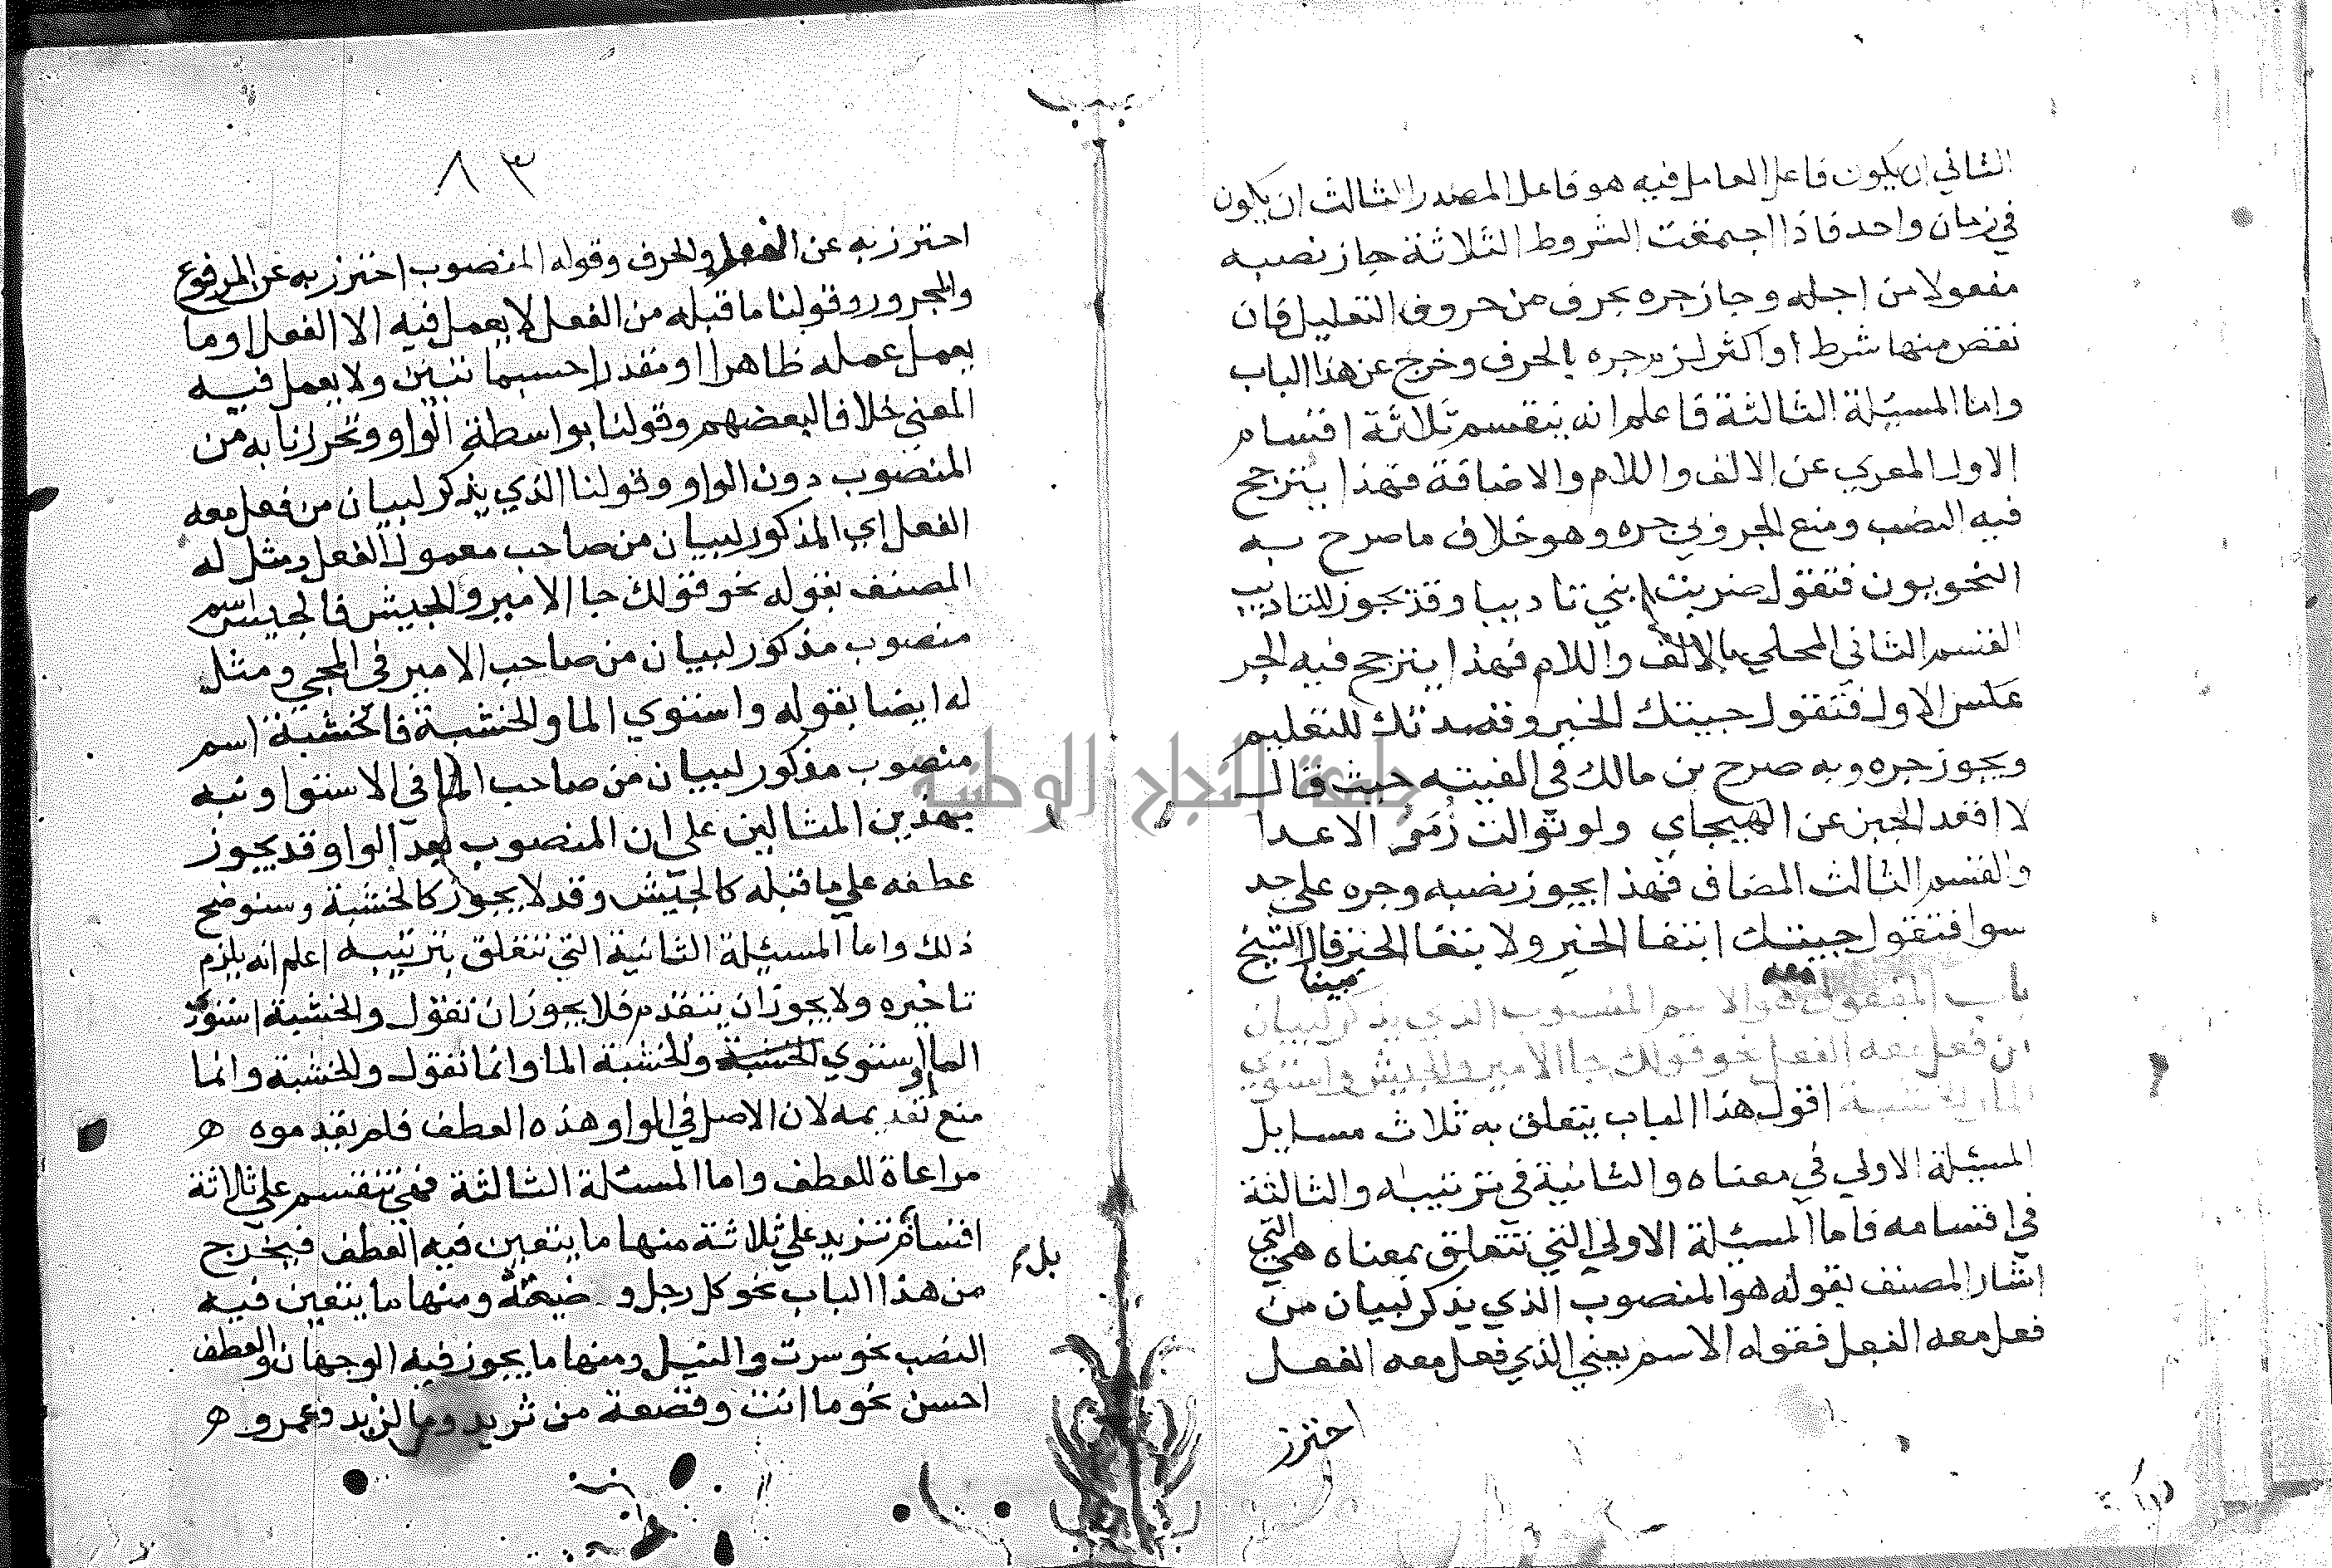 الثاني ان يكون فاعل العامل فيه هو فاعل المصدر الثالث ان يكون
في زمان واحد فاذا اجتمعت الشروط الثلاثة جاز نصبه
مفعولا من اجله وجاز جره بحرف من حروف التعليل فان
نقص منها شرط أو اكثر لزم جره بالحرف وخرج عن هذا الباب
واما المسئلة الثالثة فاعلم انه ينقسم ثلاثة اقسام
الاول المعري عن الالف واللام والاضافة فهذا يترجح
فيه النصب ومنع الجزولي جره وهو خلاف ما صرح به
النحويون فتقول ضربت ابني تاديبا وقد يجوز للتاديب
القسم الثاني المحلي بالالف واللام فهذا يترجح فيه الجر
عكس الاول فتقول جيتك الخير وقصدتك للتعليم
ويجوز جره وبه صرح بن مالك في الفيته حيث قال
لا اقعد الجبن عن الهيجاي ولو توالت زمر الاعدا
والقسم الثالث المضاف فهذا يجوز نصبه وجره علي حد
سوا فتقول جيتك ابتغا الخير ولا بتغا الخير قال الشيخ
باب المفعول معه وهو الاسم المنصوب الذي يذكر لبيان
من فعل معه الفعل نحو قولك جا الامير والجيش واستوي
الما والخشبة اقول هذا الباب يتعلق به ثلاث مسايل
المسئلة الاولي في معناه والثانية في ترتيبه والثالثة
في اقسامه فاما المسئلة الاولي التي تتعلق بمعناه هي التي
اشار المصنف بقوله هو المنصوب الذي يذكر لبيان من
فعل معه الفعل فقوله الاسم يعني الذي فعل معه الفعل
احترز
٨٣
احترز به عن الفعل والحرف وقوله المنصوب احترز به عن المرفوع
والمجرور وقولنا ما قبله من الفعل لا يعمل فيه الا الفعل او ما
يعمل عمله ظاهرا او مقدرا حسبما نبين ولا يعمل فيه
المعني خلافا لبعضهم وقولنا بواسطة الواو وتحرزنا به من
المنصوب دون الواو وقولنا الذي يذكر لبيان من فعل معه
الفعل اي المذكور لبيان من صاحب معمول الفعل ومثل له
المصنف بقوله نحو قولك جا الامير والجيش فالجيش اسم
منصوب مذكور لبيان من صاحب الامير في المجي ومثل
له ايضا بقوله واستوي الما والخشبة فالخشبة اسم
منصوب مذكور لبيان من صاحب الما في الاستوا ونبه
بهذين المثالين علي ان المنصوب بعد الواو قد يجوز
عطفه علي ما قبله كالجيش وقد لا يجوز كالخشبة وسنوضح
ذلك واما المسئلة الثانية التي تتعلق بترتيبه اعلم انه يلزم
تاخيره ولا يجوز ان يتقدم فلا يجوز ان تقول والخشبة استوي
الما او استوي والخشبة الما وانما تقول والخشبة وانما
منع تقديمه لان الاصل في الواو هذه العطف فلم يقدموه ه
مراعاة للعطف واما المسئلة الثالثة فهي تنقسم علي ثلاثة
اقسام تزيد علي ثلاثة منها ما يتعين فيه العطف فيخرج
من هذا الباب نحو كل رجل و ضيعته ومنها ما يتعين فيه
النصب نحو سرت والنيل ومنها ما يجوز فيه الوجهان والعطف
احسن نحو ما انت وقصعة من ثريد وما لزيد وعمرو ه
جامعة النجاح الوطنية